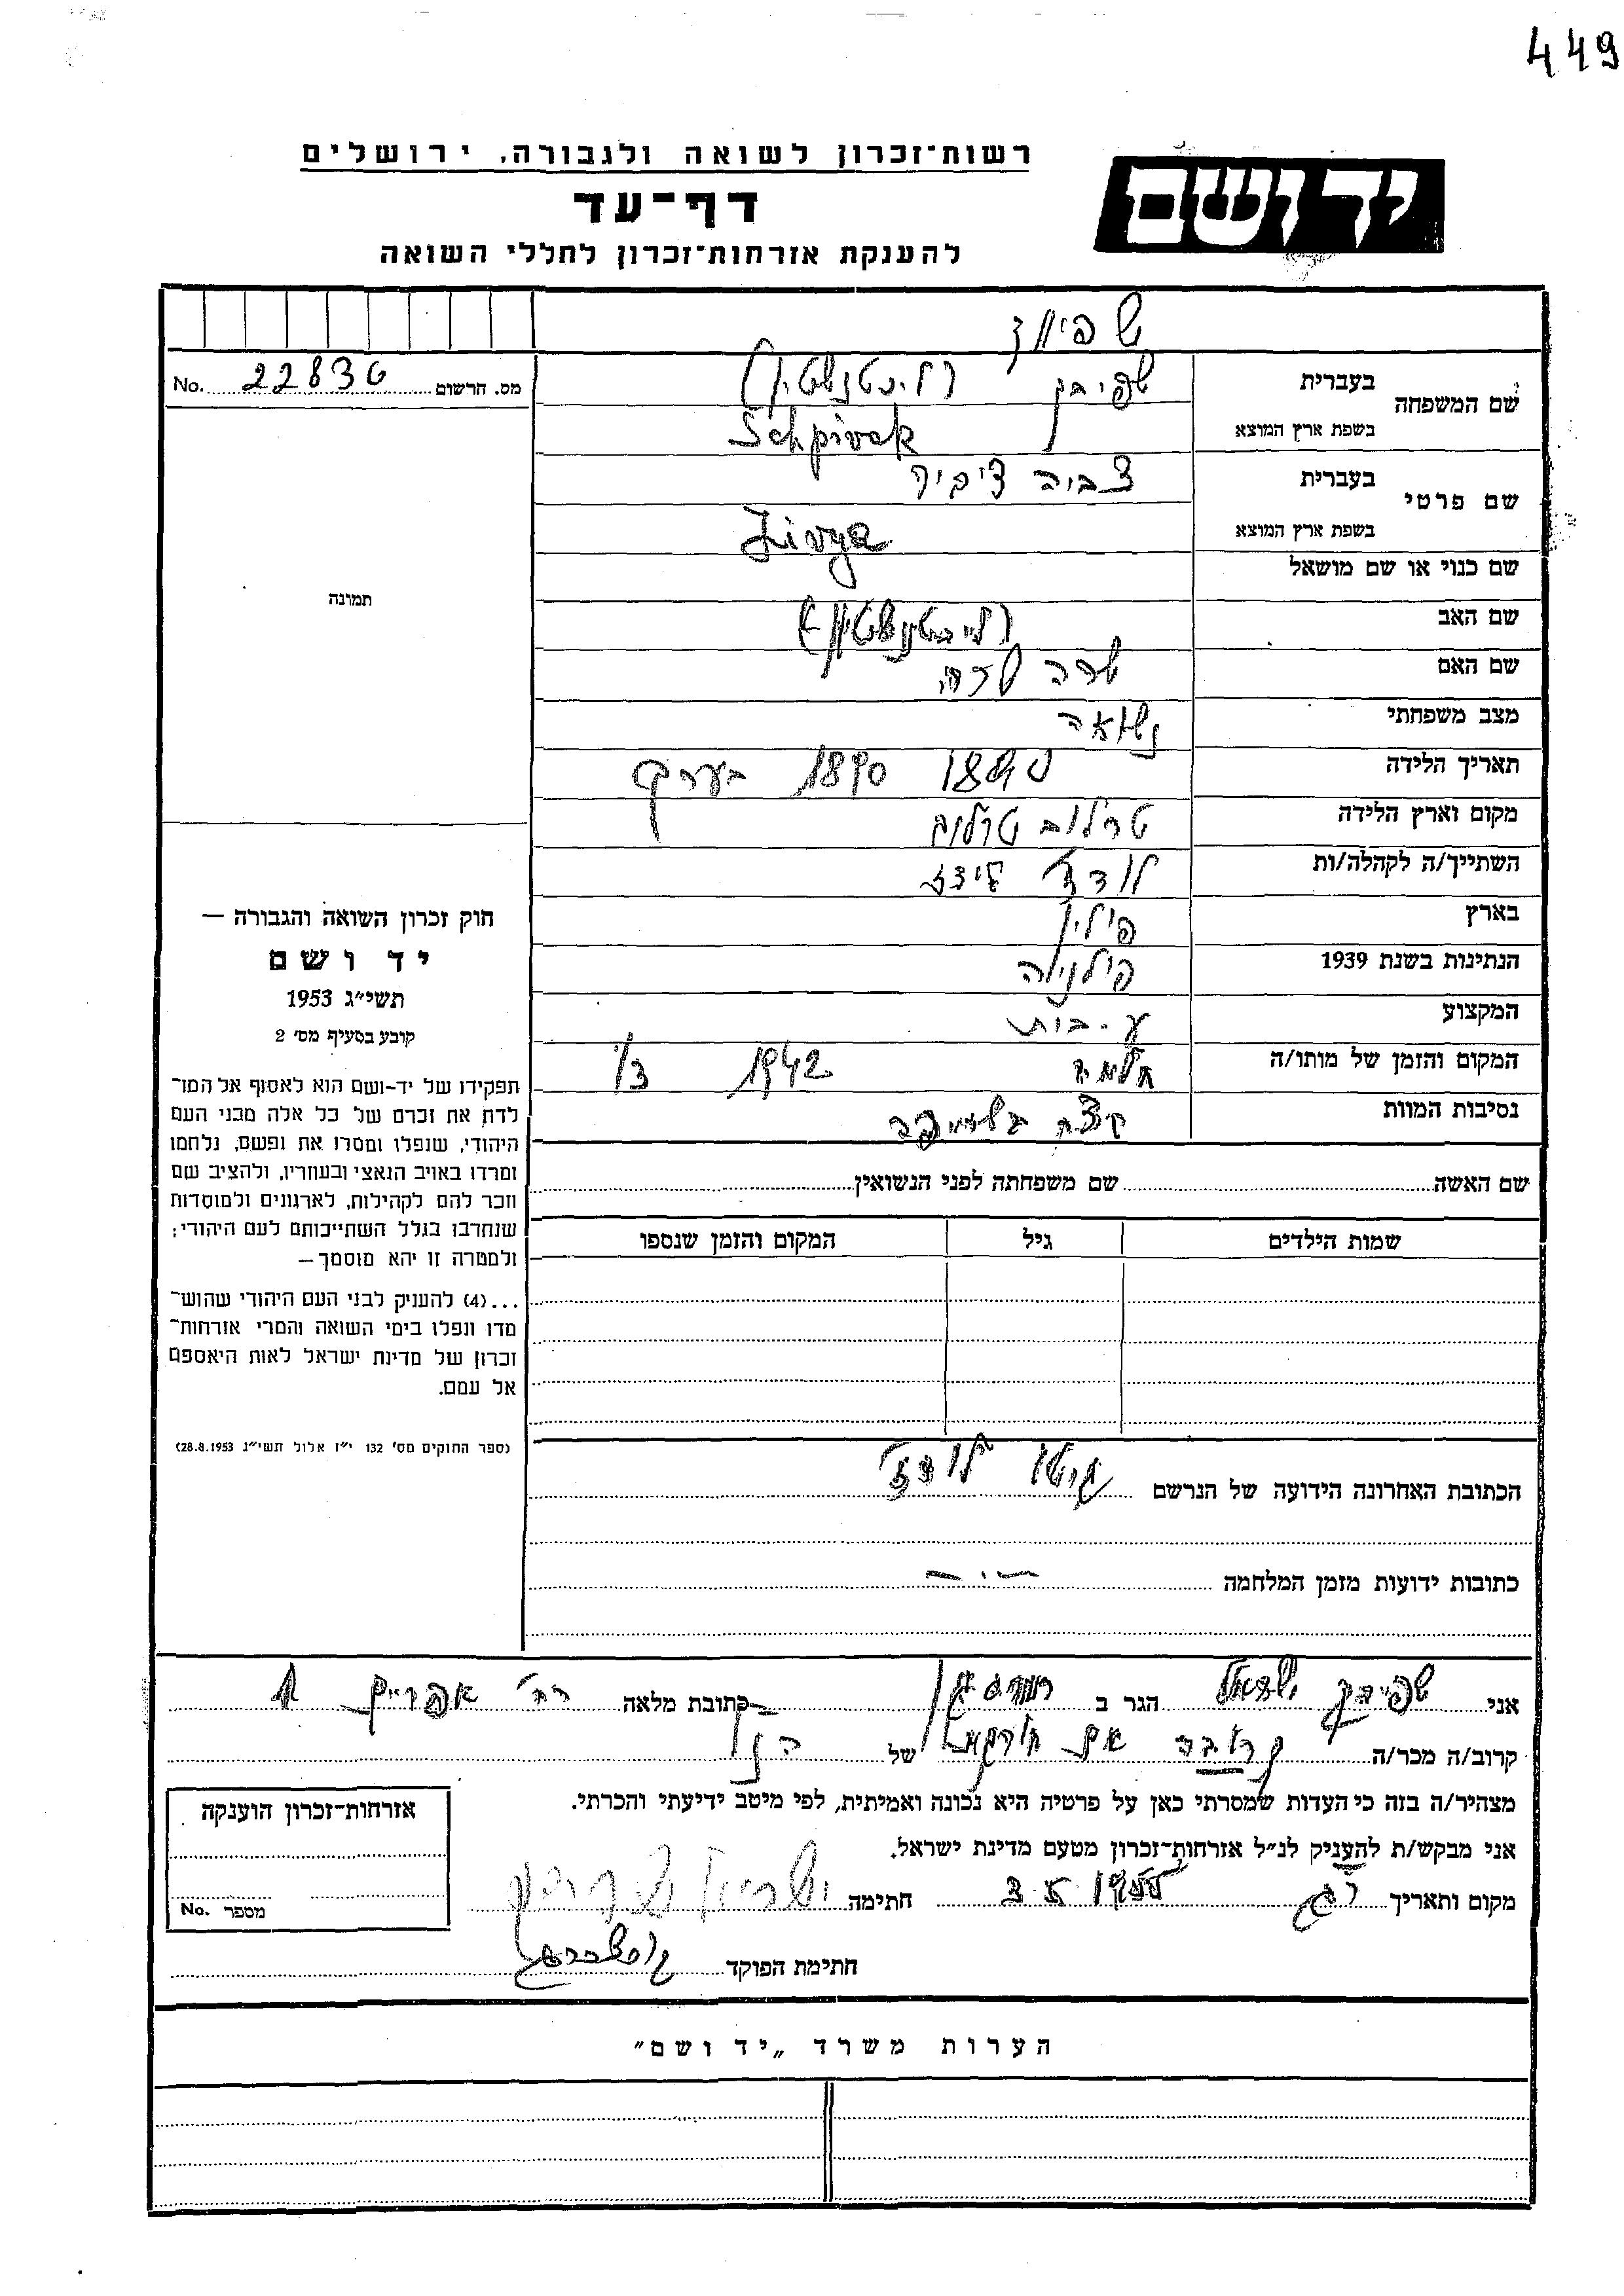 449
רשות־זכרון לשואה ולגבורה, ירושלים
יד ושם
דף־עד
להענקת אזרחות־זכרון לחללי השואה
No. 22836 מס. הרשום
שם המשפחה
בעברית שפיבק
בשפת ארץ המוצא Schpivak
שם פרטי
בעברית צביה ציביה
בשפת ארץ המוצא Zivya
שם כנוי או שם מושאל
שם האב
שם האם שרה
מצב משפחתי נשואה
תאריך הלידה 1890 1890 בערך
מקום וארץ הלידה
השתייך/ה לקהלה/ות לודז'
בארץ פולין
הנתינות בשנת 1939 פולניה
המקצוע ע. בית
המקום והזמן של מותו/ה 1942
נסיבות המוות
שם האשה
שם משפחתה לפני הנשואין
שמות הילדים
גיל
המקום והזמן שנספו
הכתובת האחרונה הידועה של הנרשם גיטו לודז'
כתובות ידועות מזמן המלחמה
תמונה
חוק זכרון השואה והגבורה —
יד ושם
תשי״ג 1953
קובע בסעיף מס׳ 2
תפקידו של יד-ושם הוא לאסוף אל המו־
לדת את זכרם של כל אלה מבני העם
היהודי, שנפלו ומסרו את נפשם, נלחמו
ומרדו באויב הנאצי ובעוזריו, ולהציב שם
וזכר להם לקהילות, לארגונים ולמוסדות
שנחרבו בגלל השתייכותם לעם היהודי;
ולמטרה זו יהא מוסמך —
...(4) להעניק לבני העם היהודי שהוש־
מדו ונפלו בימי השואה והמרי אזרחות־
זכרון של מדינת ישראל לאות היאספם
אל עמם.
(ספר החוקים מס׳ 132 י״ז אלול תשי״ג 28.8.1953)
אני שפיבק ישראל הגר ב כתובת מלאה רח' אפרים
קרוב/ה מכר/ה קרובה של
מצהיר/ה בזה כי העדות שמסרתי כאן על פרטיה היא נכונה ואמיתית, לפי מיטב ידיעתי והכרתי.
אני מבקש/ת להעניק לנ״ל אזרחות־זכרון מטעם מדינת ישראל.
מקום ותאריך חתימה
חתימת הפוקד
אזרחות־זכרון הוענקה
No. מספר
הערות משרד „יד ושם״